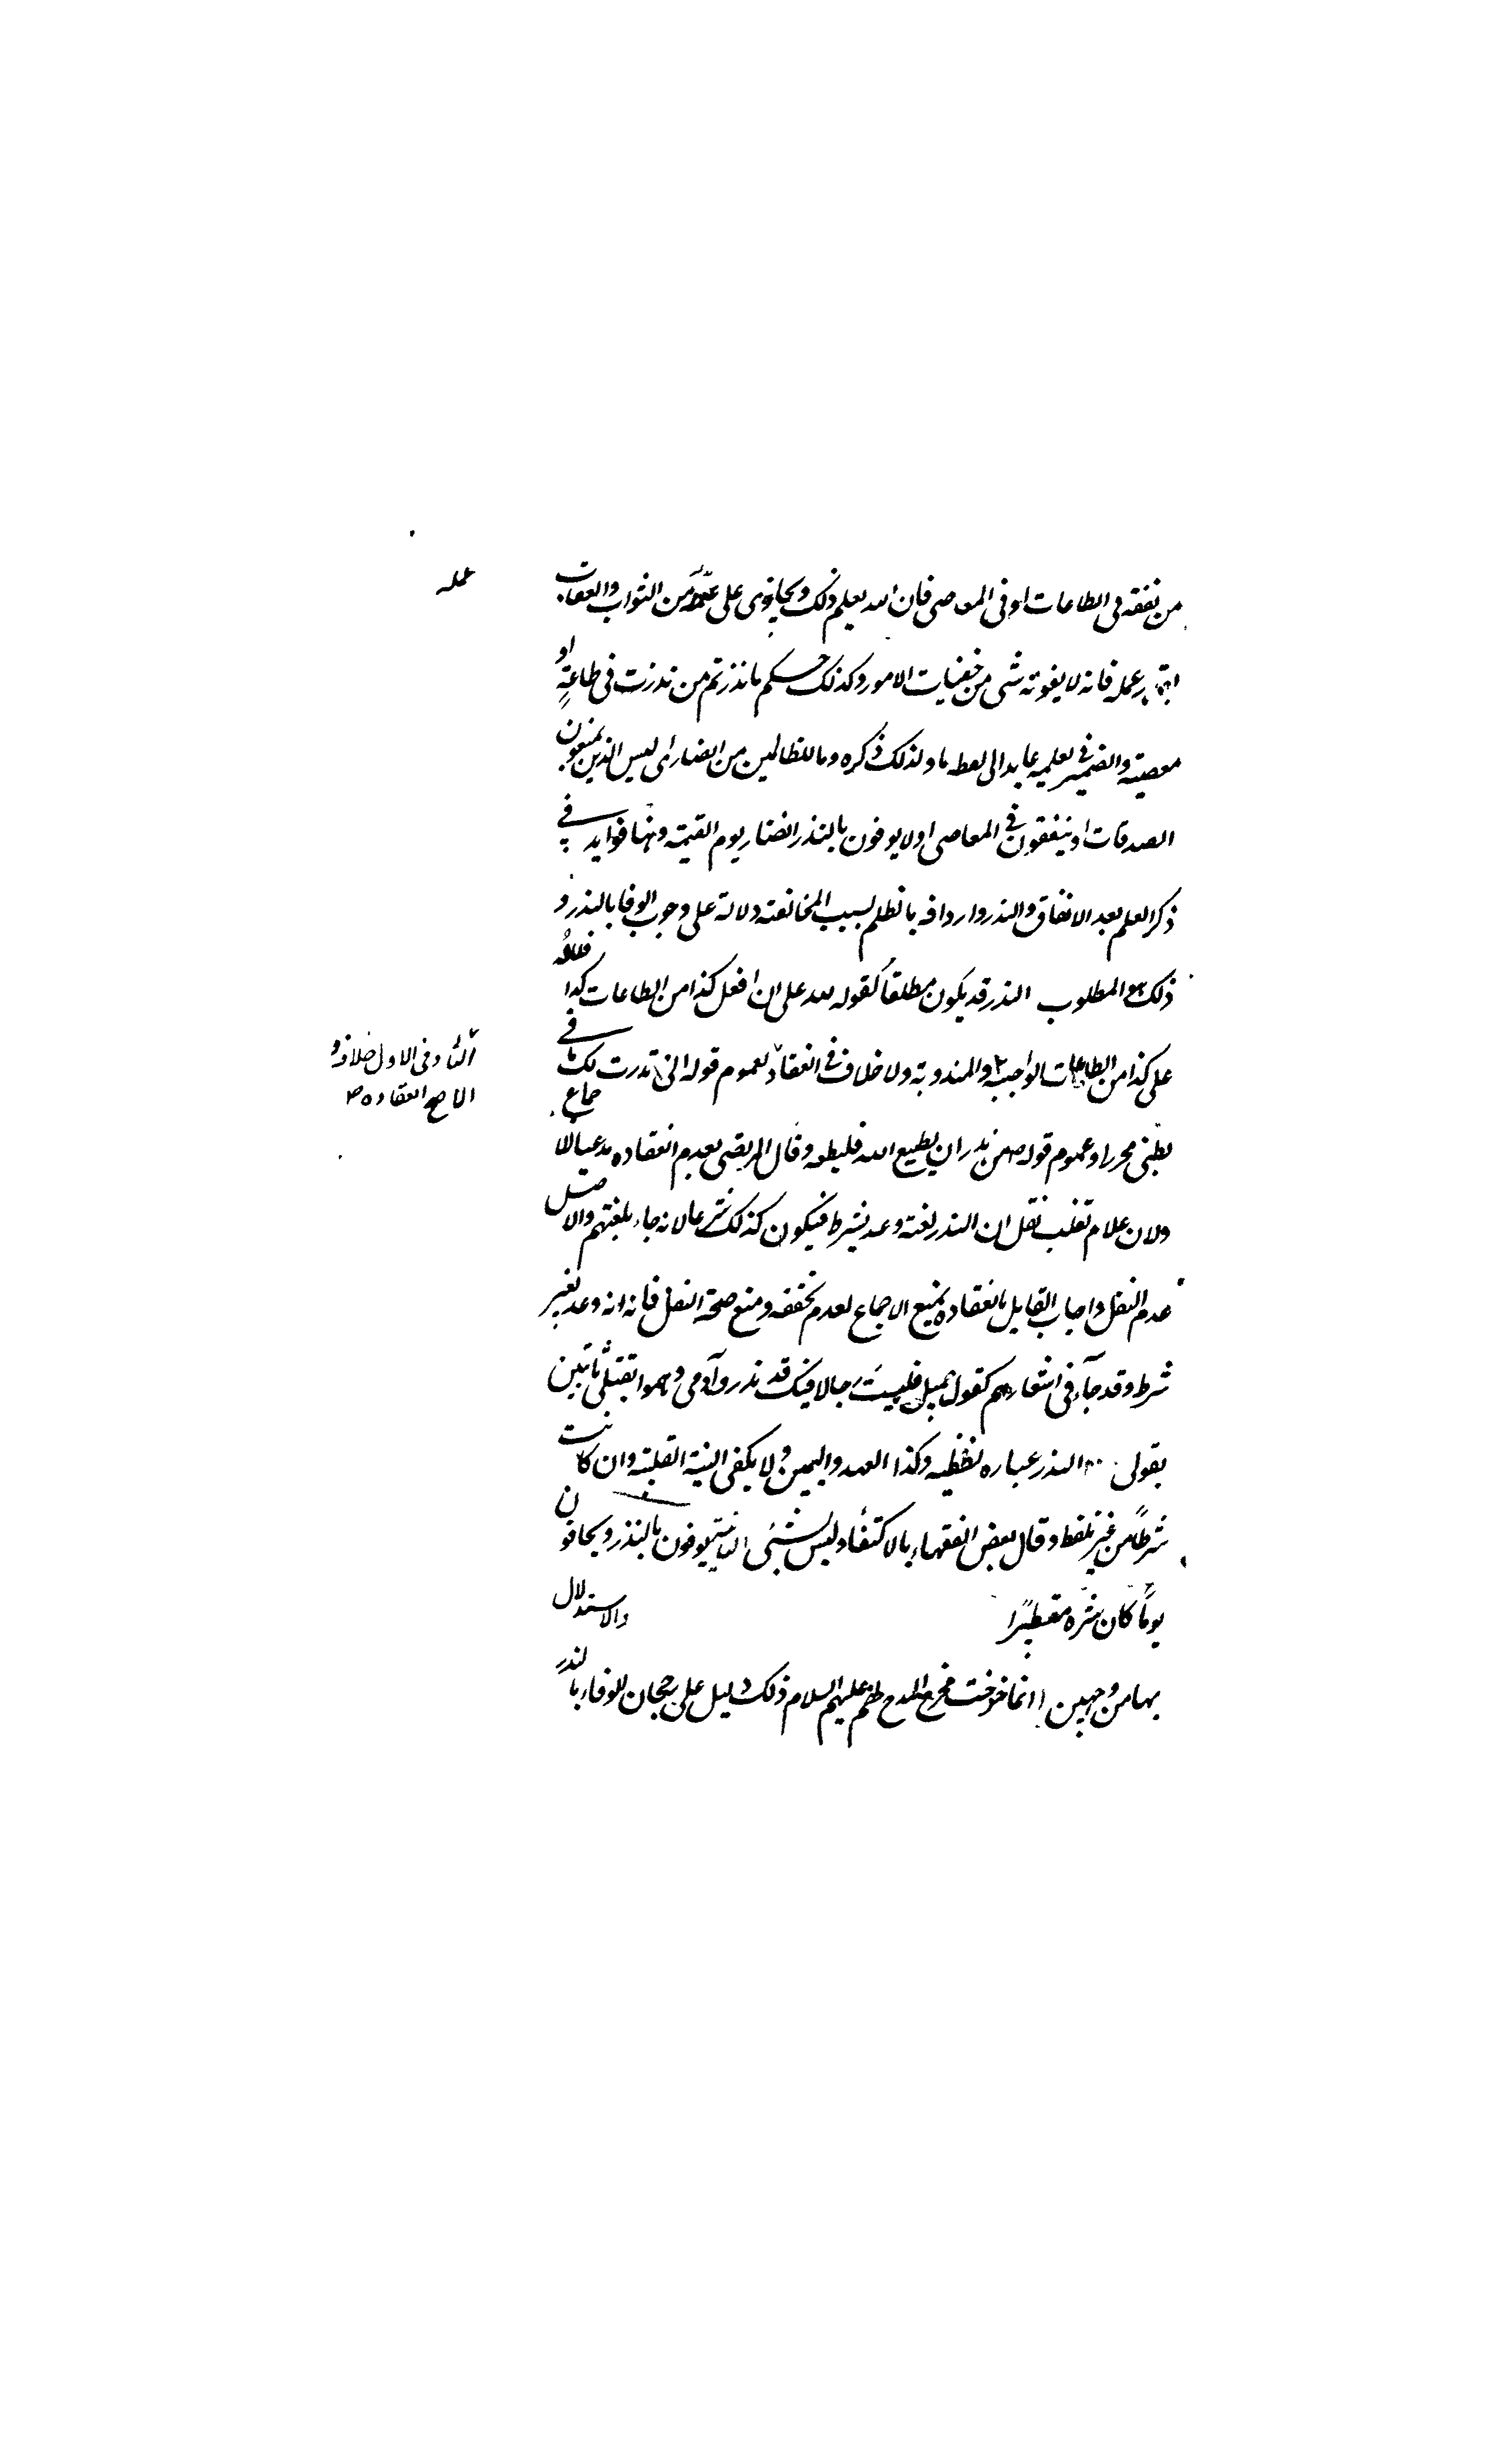 من نفقه فى الطاعات او فى المعاصى فان الله يعلم ذلك ويجازى على من الثواب والعقاب
عمله
عمله فانه لا يفوته شى من خفيات الامور وكذلك حكم ما نذرتم من نذر فى طاعة او
معصية والضمير فى يعلمه عايد الى لفظه ما ولذلك ذكره وما للظالمين من انصار اى ليس الذين يمنعون
الصدقات او ينفقون فى المعاصى او لا يوفون بالنذر انصار يوم القيمة وهنا فوايد فى
ذكر العلم بعد الانفاق والنذر واردافه بالظلم بسبب المخالفته دلالة على وجوب الوفا بالنذر و
ذلك هو المطلوب النذر قد يكون مطلقا كقوله لله على ان افعل كذا من الطاعات كذا فلله
على كذا من الطاعات الواجبة والمندوبة ولا خلاف فى انعقاد لعموم قوله انى نذرت لك ما فى
الثانى وفى الاول خلاف و
الاصح انعقاده
بطنى محررا وعموم قوله من نذر ان يطيع الله فليطعه وقال المرتضى بعدم انعقاده مدعيا الاجماع
ولان غلام ثعلب نقل ان النذر لغة وعد بشرط فيكون كذلك شرعا لانه جاء بلغتهم والاصل
عدم النقل واجاب القايل بانعقاده بمنع الاجماع لعدم تحققه ومنع صحة النقل فانه انه وعد بغير
شرط وقد جآء فى اشعارهم كقول جميل فليت رجالا فيك قد نذروا دمى وهموا بقتلى يا بثين
لقونى النذر عباره لفظيه وكذا العهد واليمين ولا يكفى النية القلبية وان كانت
شرطا من غير تلفظ وقال بعض الفقهاء بالاكتفاء وليس بشئ يوفون بالنذر ويخافون
يوما كان شره مستطيرا والاستدلال
بها من وجهين انها خرجت مخرج المدح لهم عليهم السلام ذلك دليل على رجحان الوفاء بالنذر